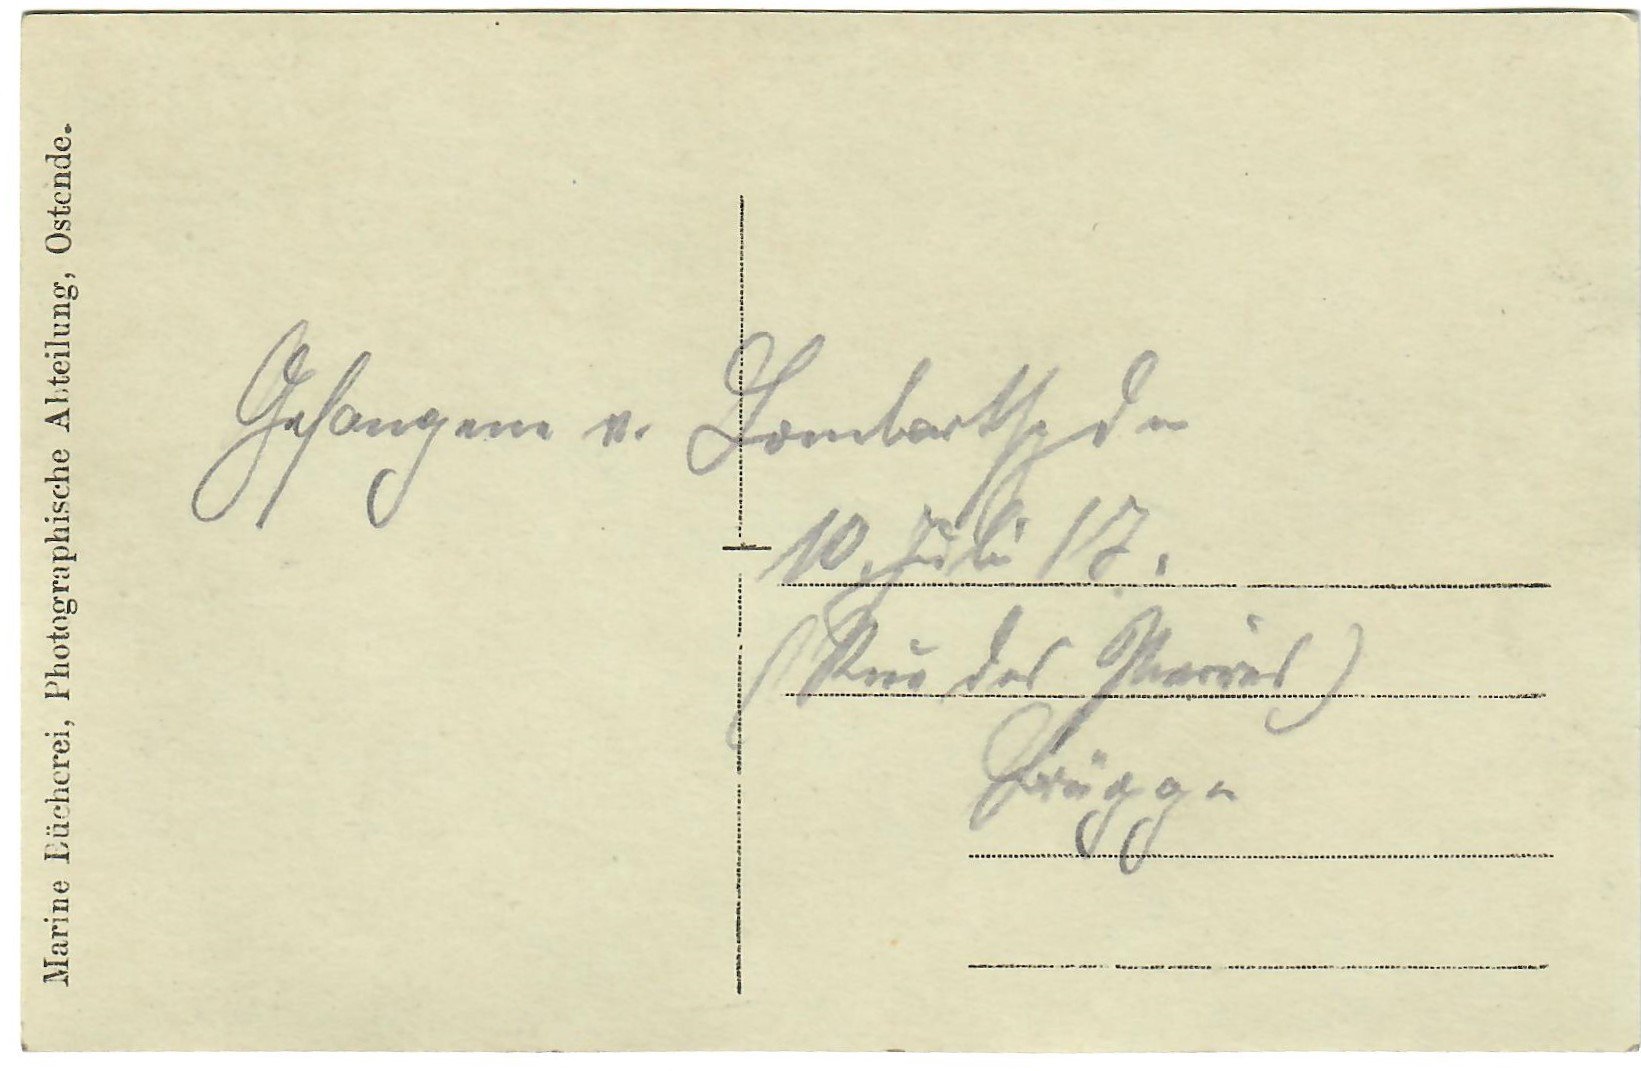 Marine Bücherei, Photographische Abteilung, Ostende.
Gefangene v. Lombartzyde
10. Juli 17.
(Rue des Pierres)
Brügge